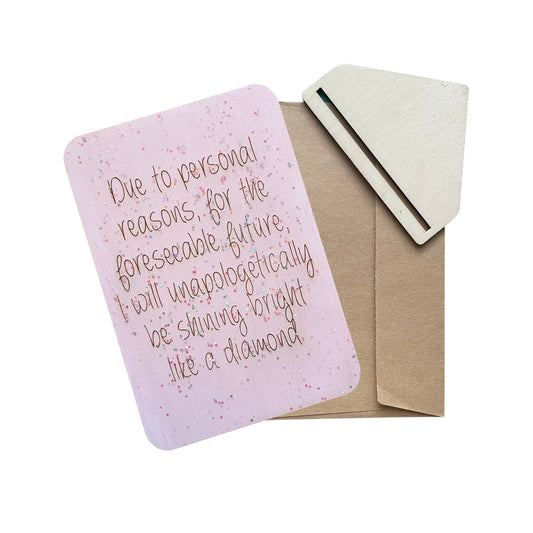 Due to personal
reasons, for the
foreseeable future,
I will unapologetically
be shining bright
like a diamond.